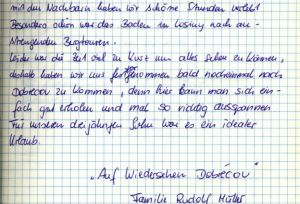 mit den Nachbarn haben wir schöne Stunden verlebt
Besonders schön war das Baden in nach an-
strengenden Bergtouren.
Leider war die Zeit viel zu kurz um alles sehen zu können,
deshalb haben wir uns vorgenommen bald nocheinmal nach
Dobřecov zu kommen, denn hier kann man sich ein-
fach gut erholen und mal so richtig ausspannen
Für unseren dreijährigen Sohn war es ein idealer
Urlaub.
„Auf Wiedersehen Dobřecov"
Familie Rudolf Müller